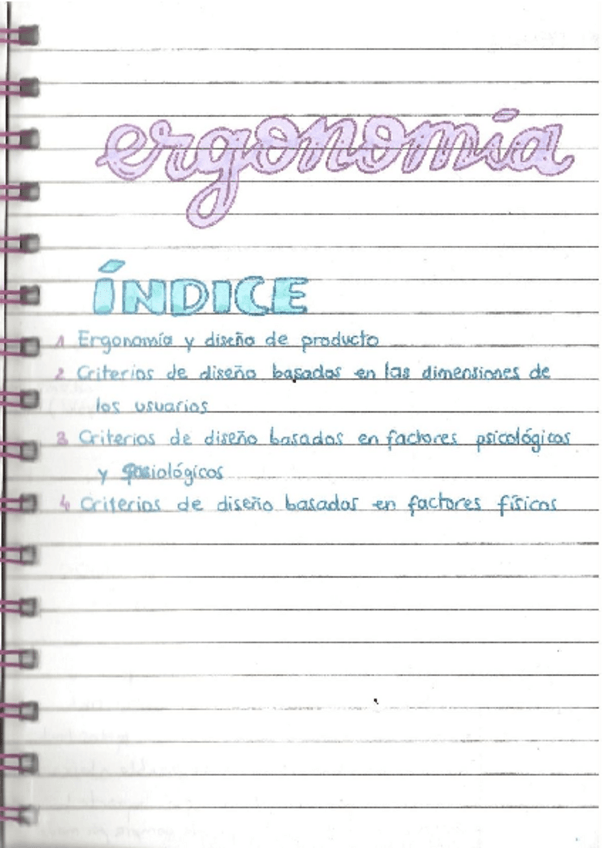 ergonomía
ÍNDICE
1 Ergonomía y diseño de producto
2 Criterios de diseño basados en las dimensiones de
los usuarios
3 Criterios de diseño basados en factores psicológicos
y
4 Criterios de diseño basados en factores físicos